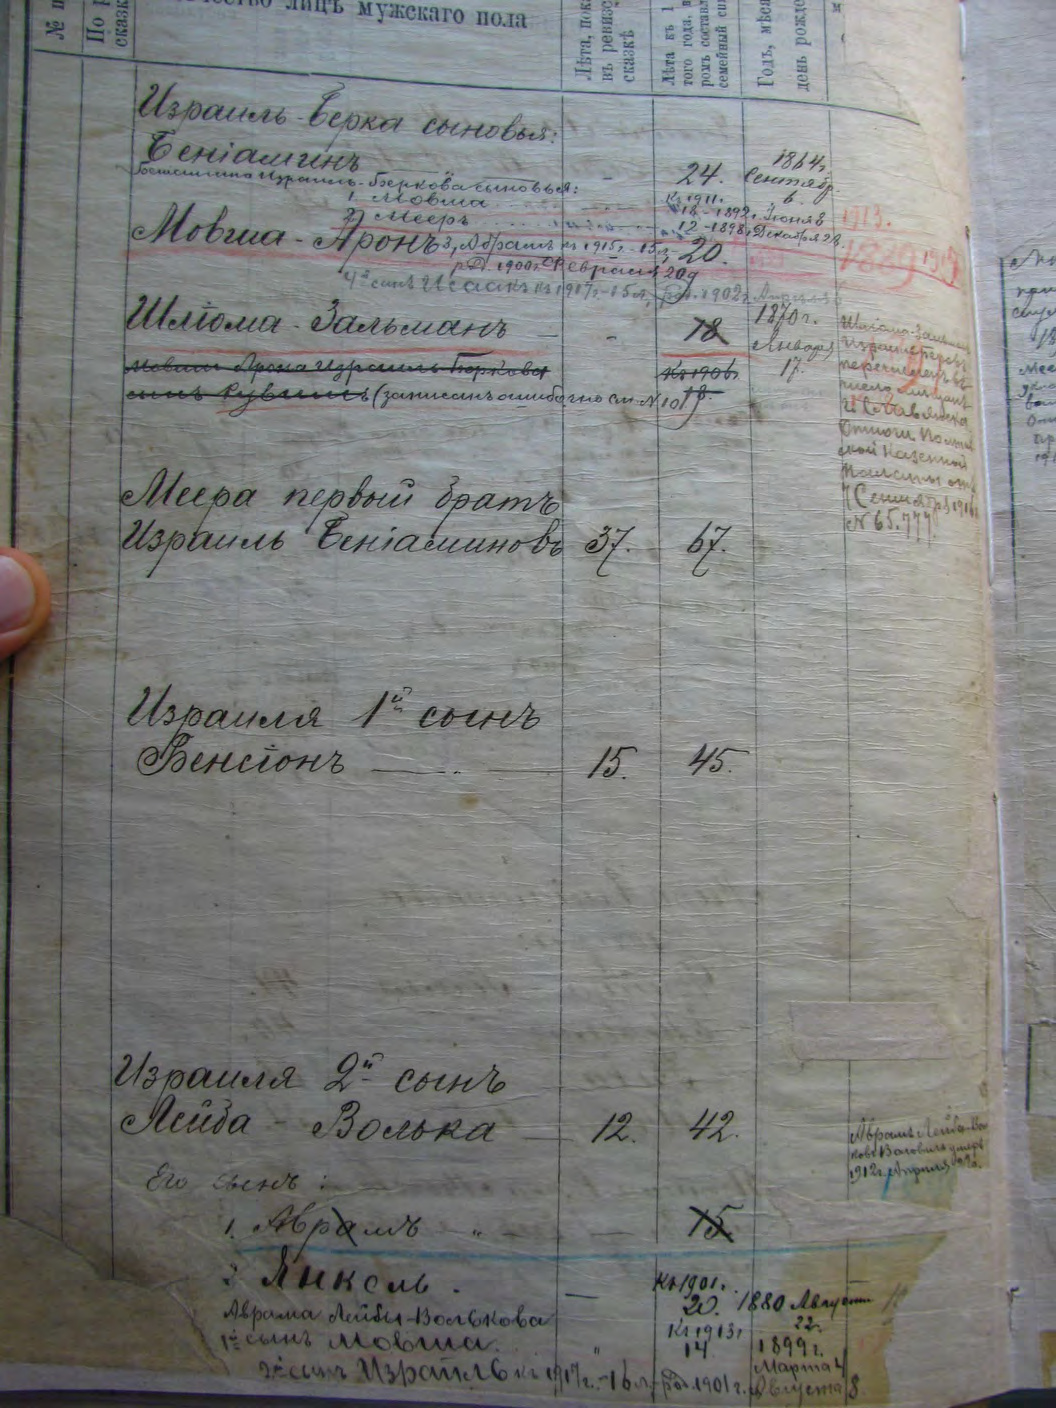 № п
По р
сказк
чество лицъ мужскаго пола
Лѣта, пока
въ ревизс
сказкѣ
Лѣта къ 1
того года, в
ромъ составл
семейный спи
Годъ, мѣся
день рожде
Израиль-Берка сыновья:
Беніаминъ - 24. 1864 г. Сентябр. 6.
Беніамина Израиль-Беркова сыновья:
1. Мовша Къ 1911. 18-1892, Іюня 8
2) Мееръ 12-1898, Декабря 28.
1913.
Мовша-Аронъ 20. 1889
3, Абрамъ къ 1915 г. - 15 л,
род. 1900 г. Февраля 20 д
4й сынъ Исаакъ къ 1917 г. - 15 л, род. 1902 г. Апреля
Шліома-Зальманъ - - 18 1870 г. Января 17.
Мовши Арона Израиль-Беркова Къ 1906.
сынъ Рувинъ (записанъ ошибочно см. № 101) 18
Шліома-Зальманъ
перечисленъ въ
число мѣщанъ
Казенной
Палаты отъ
Сентября 1916
№ 65.777
Меера первый братъ
Израиль Беніаминовъ 37. 67.
Израиля 1й сынъ
Бенсіонъ — „ — 15. 45.
Израиля 2й сынъ
Лейба - Волька — 12. 42.
Абрамъ Лейба-Воль
ковъ умеръ
1912 г. Апреля
Его сынъ:
1. Абрамъ - „ - 15.
2. Янкель. — Къ 1901. 20. 1880 Августа 22.
Аврама Лейбы-Волькова
1й сынъ Мовша. „ Къ 1913 г 14 1899 г. Марта 4
2й сынъ Израиль къ 1917 г. - 16 л. род. 1901 г. Августа 8.